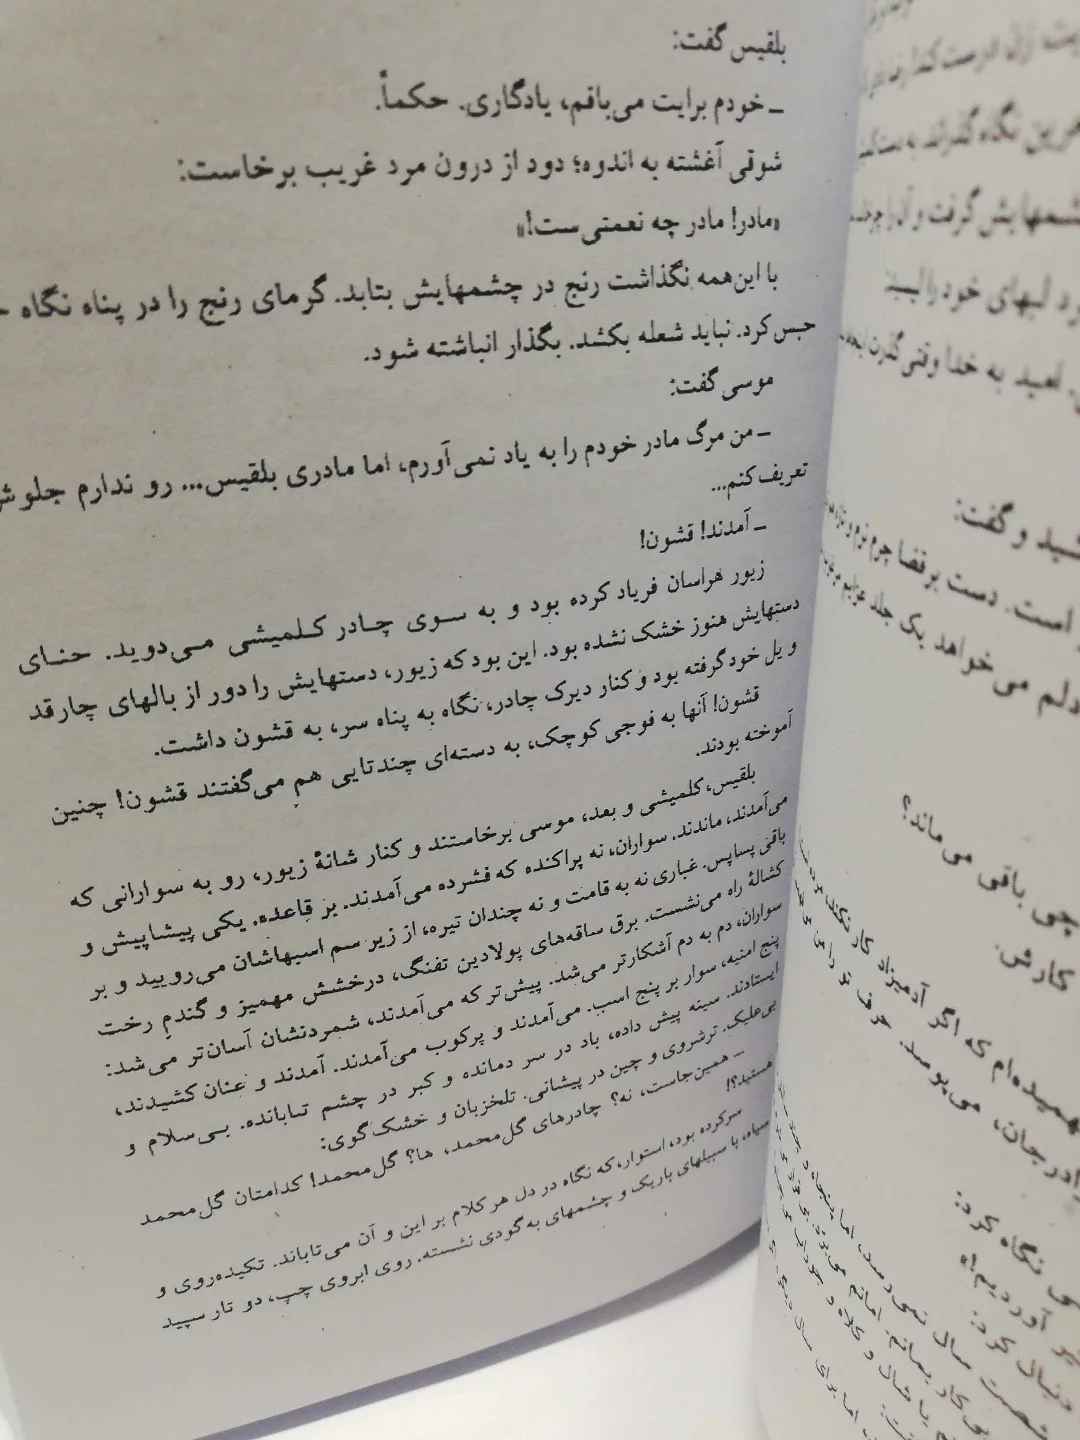 بلقیس گفت:
ــ خودم برایت می‌بافم، یادگاری. حکماً.
شوقی آغشته به اندوه؛ دود از درون مرد غریب برخاست:
«مادر! مادر چه نعمتی‌ست!»
با این‌همه نگذاشت رنج در چشمهایش بتابد. گرمای رنج را در پناه نگاه
حبس کرد. نباید شعله بکشد. بگذار انباشته شود.
موسی گفت:
ــ من مرگ مادر خودم را به یاد نمی‌آورم، اما مادری بلقیس... رو ندارم جلوش
تعریف کنم...
ــ آمدند! قشون!
زیور هراسان فریاد کرده بود و به سوی چادر کلمیشی می‌دوید. حنای
دستهایش هنوز خشک نشده بود. این بود که زیور، دستهایش را دور از بالهای چارقد
و یل خود گرفته بود و کنار دیرک چادر، نگاه به پناه سر، به قشون داشت.
قشون! آنها به فوجی کوچک، به دسته‌ای چندتایی هم می‌گفتند قشون! چنین
آموخته بودند.
بلقیس، کلمیشی و بعد، موسی برخاستند و کنار شانهٔ زیور، رو به سوارانی که
می‌آمدند، ماندند. سواران، نه پراکنده که فشرده می‌آمدند. بر قاعده. یکی پیشاپیش و
باقی پساپس. غباری نه به قامت و نه چندان تیره، از زیر سم اسبهاشان می‌رویید و بر
کشالهٔ راه می‌نشست. برق ساقه‌های پولادین تفنگ، درخشش مهمیز و گندم رخت
سواران، دم به دم آشکارتر می‌شد. پیش‌تر که می‌آمدند، شمردنشان آسان‌تر می‌شد:
پنج امنیه، سوار بر پنج اسب. می‌آمدند و پرکوب می‌آمدند. آمدند و عنان کشیدند،
ایستادند. سینه پیش داده، باد در سر دمانده و کبر در چشم تابانده. بی‌سلام و
بی‌علیک. ترشروی و چین در پیشانی. تلخزبان و خشک‌گوی:
ــ همین‌جاست، نه؟ چادرهای گل‌محمد، ها؟ گل‌محمد! کدامتان گل‌محمد
هستید؟!
سرکرده بود، استوار، که نگاه در دل هر کلام بر این و آن می‌تاباند. تکیده‌روی و
سیاه، با سبیلهای باریک و چشمهای به‌گودی نشسته. روی ابروی چپ، دو تار سپید
نگاه گذراند به
چشمهایش گرفت و آن را
لبهای خود را
امید به خدا وقتی
و گفت:
است. دست بر قضا چرم نرم و
دلم می‌خواهد یک جلد
چی باقی می‌ماند؟
کارش.
که اگر آدمیزاد کار نکند
می‌پوسد. حرف تو را من
نگاه کرد:
دنبال کرد: